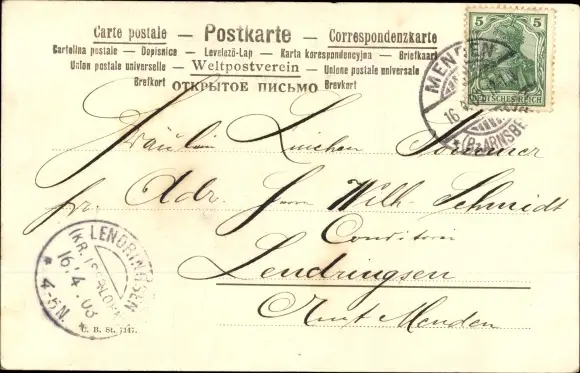 Carte postale — Postkarte — Correspondenzkarte
Cartolina postale — Dopisnice — Levelező-Lap — Karta korespondencyjna — Briefkaart
Union postale universelle — Weltpostverein — Unione postale universale
Brefkort — ОТКРЫТОЕ ПИСЬМО — Brevkort
5 5
DEUTSCHES REICH
MENDEN
16.4.
* (Bz. ARNSBE
Fräulein Linchen Sommer
fr. Adr. Herrn Wilh. Schmidt
Conditorei
Lendringsen
Amt Menden
LENDRINGSEN
(KR. ISERLOHN
16.4.03
* 4-5N. *
C. B. St. 1147.